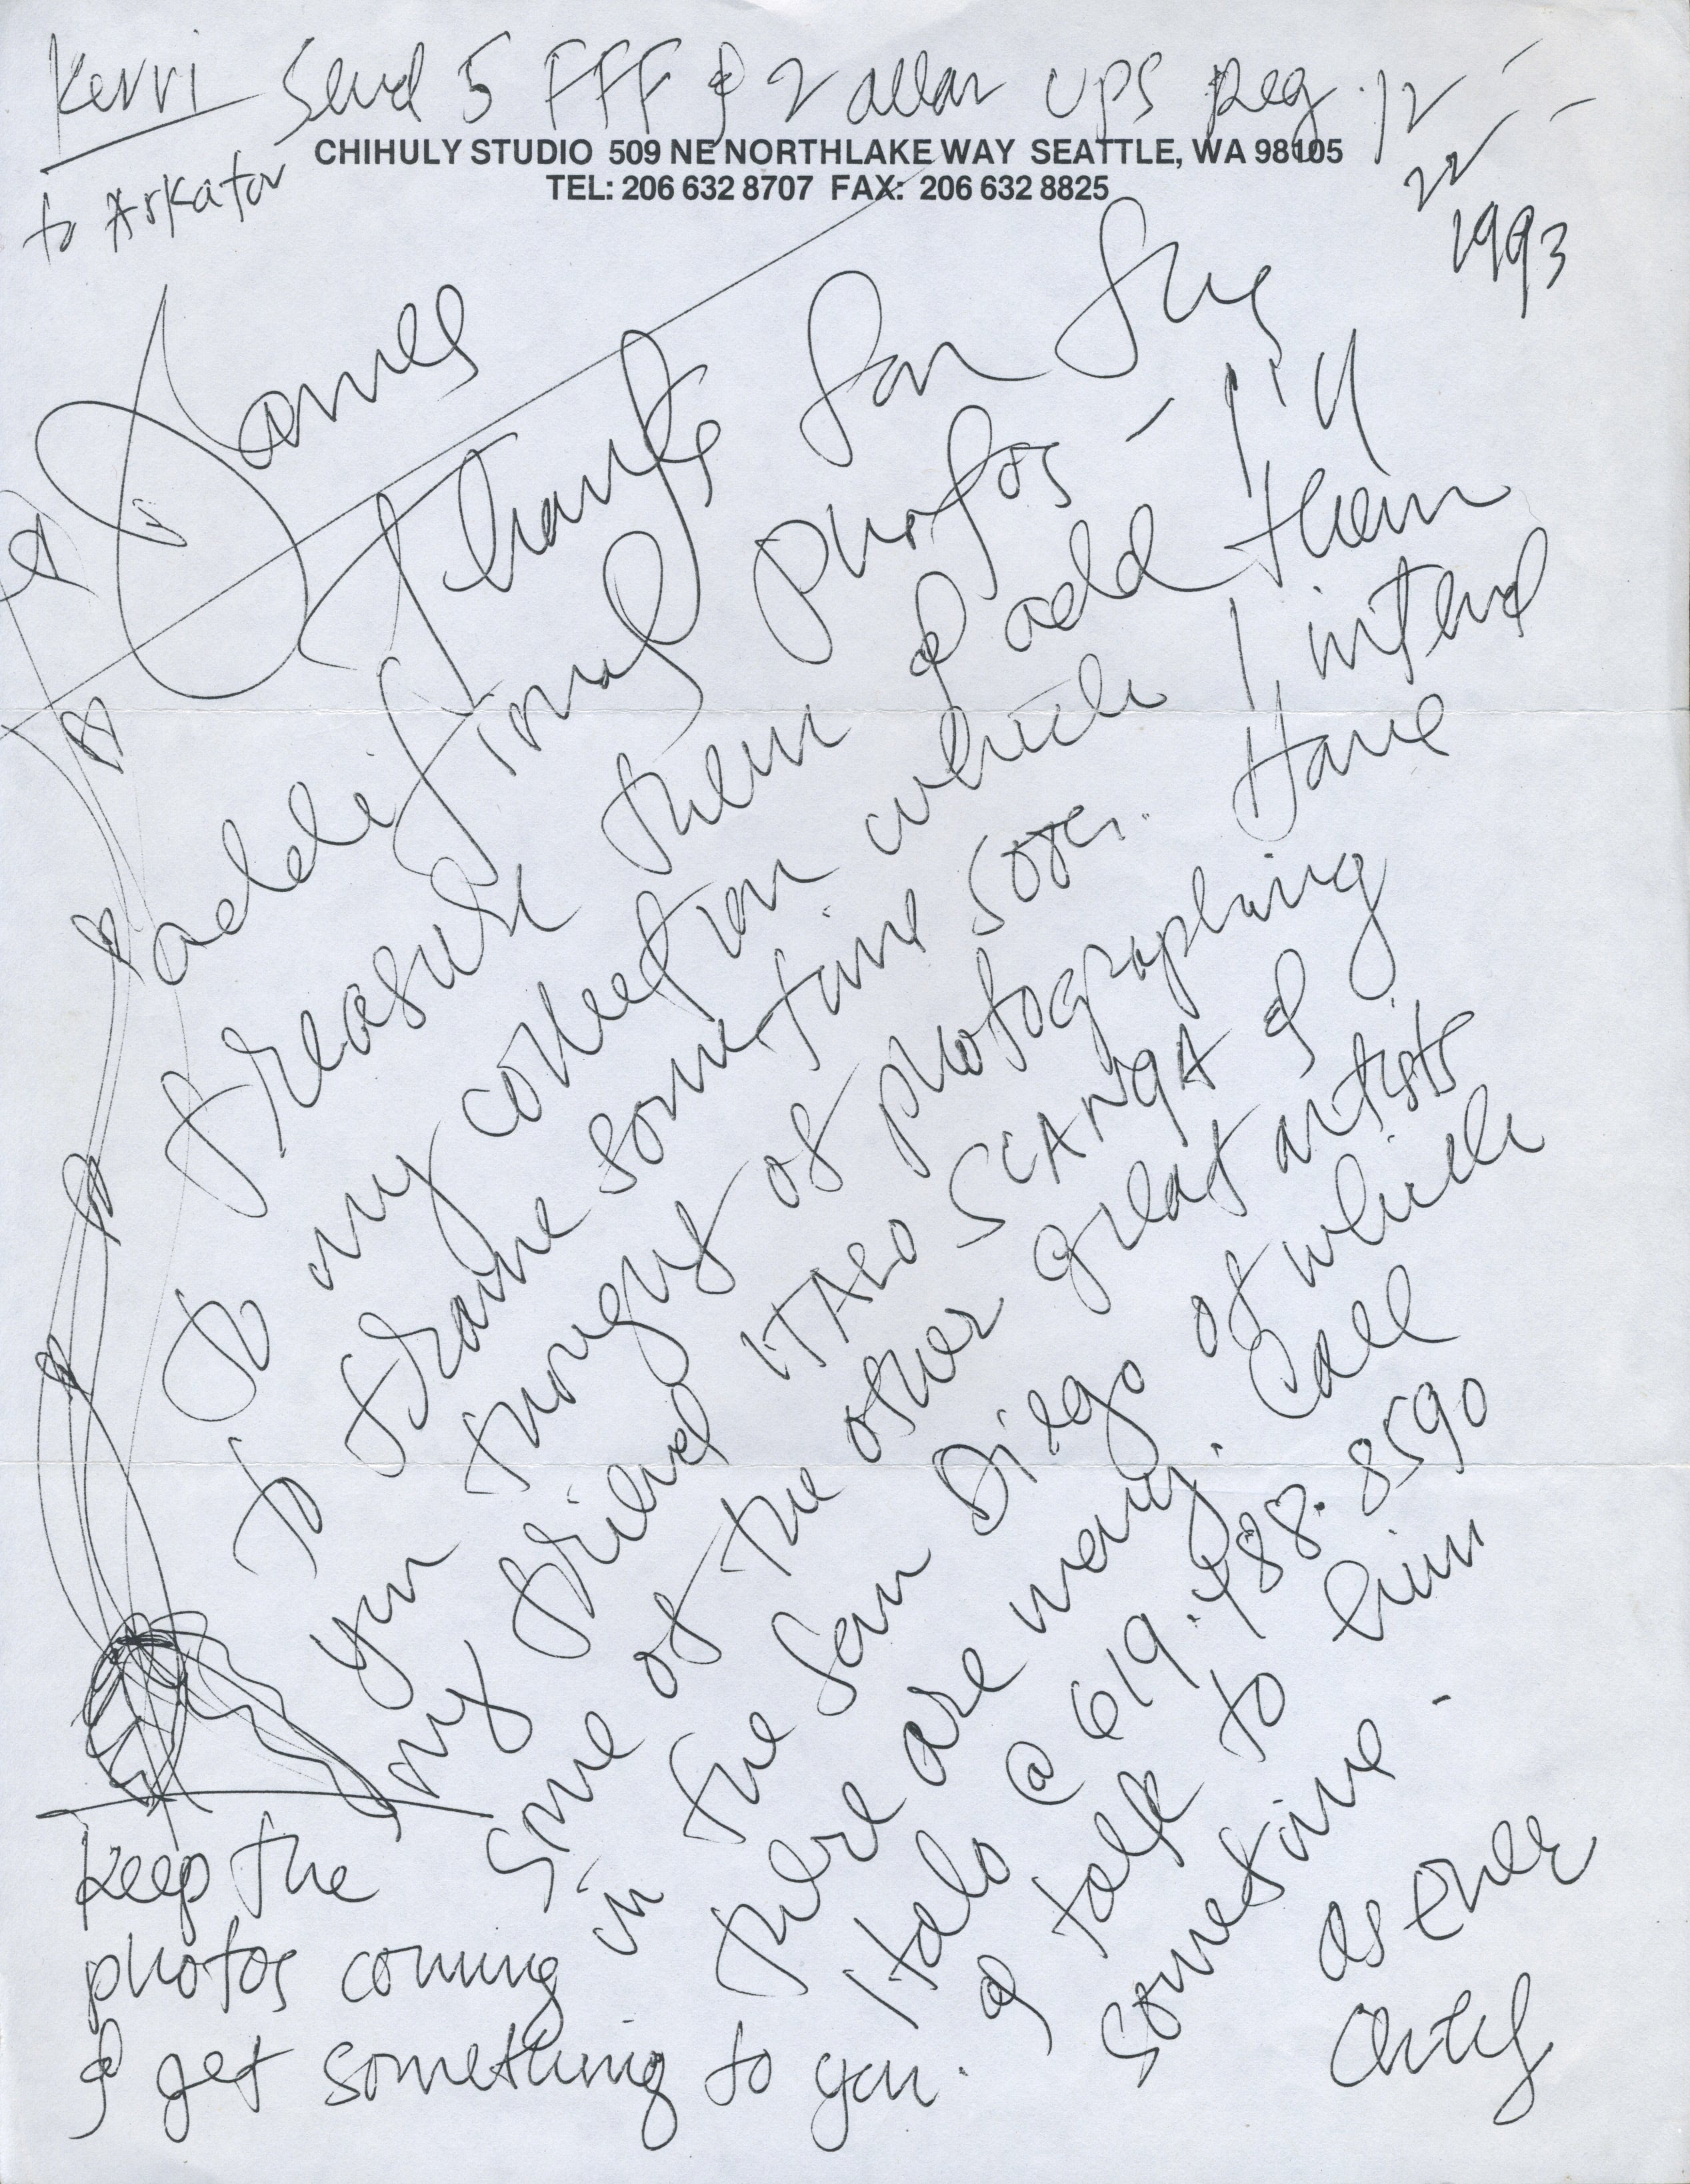 Kerri Send 5 FFF & 2 allar UPS reg. 12
22
1993
to Arkatov
CHIHULY STUDIO 509 NE NORTHLAKE WAY SEATTLE, WA 98105
TEL: 206 632 8707 FAX: 206 632 8825
James
Thanks for the
additional photos – I'll
treasure them & add them
to my collection which I intend
to frame sometime soon. Have
you thought of photographing
my friend ITALO SCANGA &
some of the other great artists
in the San Diego of which
there are many. Call
Italo @ 619.488.8590
& talk to him
sometime -
as ever
Keep the
photos coming
& get something to you.